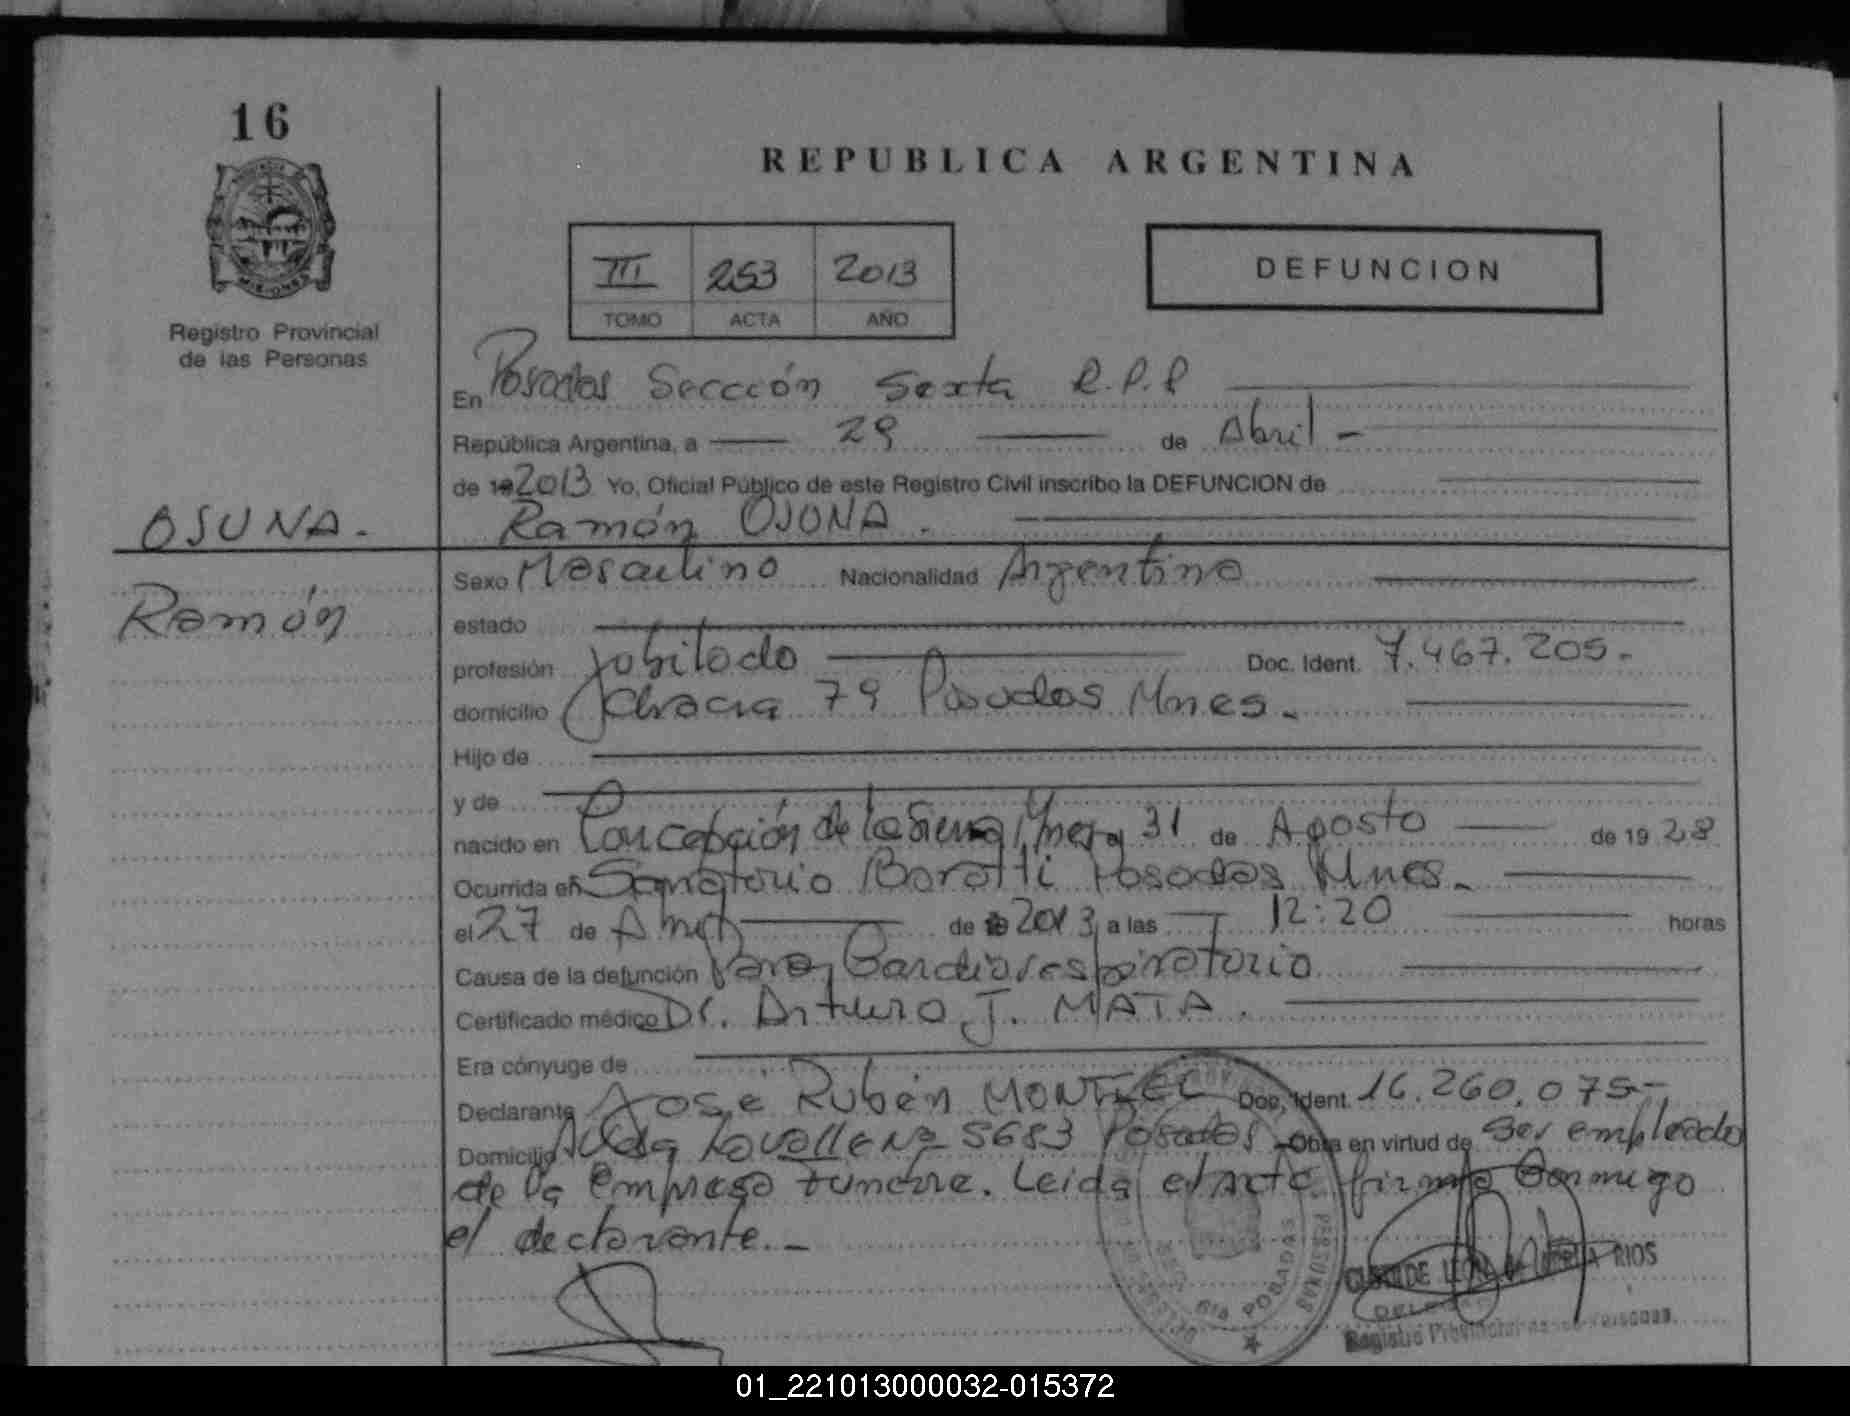 16
REPUBLICA ARGENTINA
III 253 2013
TOMO ACTA AÑO
DEFUNCION
Registro Provincial
de las Personas
En Posadas Sección Sexta R.P.P
República Argentina, a 29 de Abril -
de 19 2013 Yo, Oficial Público de este Registro Civil inscribo la DEFUNCION de
OSUNA.
Ramón OSUNA.
Ramón
Sexo Masculino Nacionalidad Argentina
estado
profesión jubilado Doc. Ident. 7.467.205.-
domicilio Chacra 79 Posadas Mnes.
Hijo de
y de
nacido en Concepción de la Sierra, Mnes a 31 de Agosto de 19 28
Ocurrida en Sanatorio Boratti Posadas Mnes.
el 27 de Abril de 2013 a las 12:20 horas
Causa de la defunción Paro Cardiorespiratorio
Certificado médico Dr. Arturo J. MATA.
Era cónyuge de
Declarante José Rubén MONTIEL Doc. Ident. 16.260.075-
Domicilio Avda Lavalle Nº 5683 Posadas Obra en virtud de Ser empleado
de la empresa funebre. Leida el acta firma Conmigo
el declarante.-
RIOS
Registro Provincial de las Personas
POSADAS
01_221013000032-015372